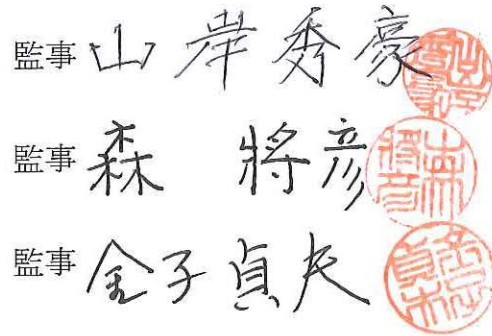 監事 山岸秀豪
監事 森 將彦
監事 金子貞夫